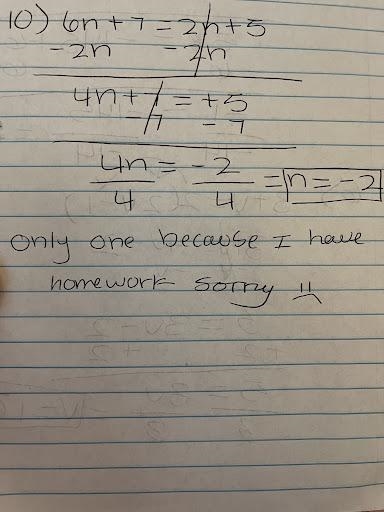 10) 6n + 7 = 2n + 5
-2n -2n
4n + 7 = +5
-7 -7
4n = -2 = n = -2
4 4
only one because I have
homework sorry :(